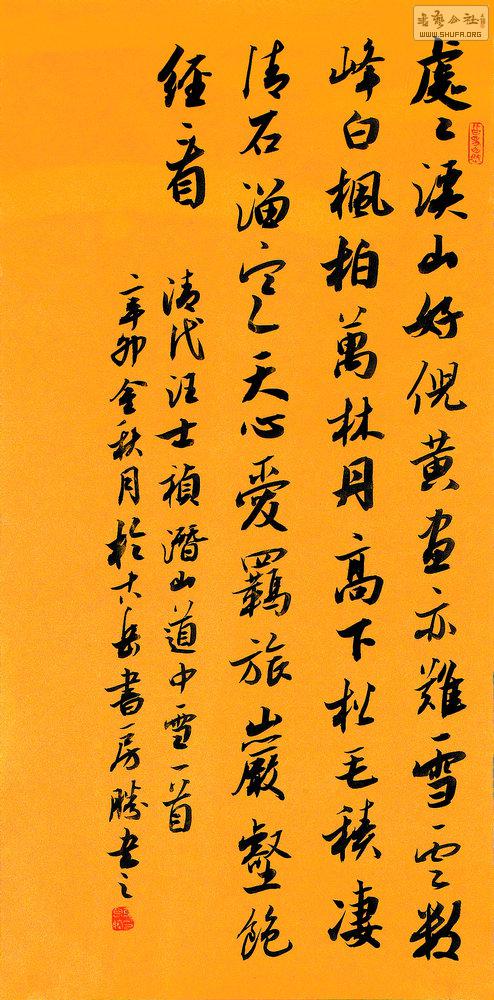 书艺公社
WWW.SHUFA.ORG
處〻溪山好倪黃畫亦難雪雲數
峰白楓柏萬林丹高下松毛積淒
清石溜寒天心愛羈旅巖壑飽
經看
清代汪士禎潛山道中雪一首
辛卯金秋月於岳書房勝書之